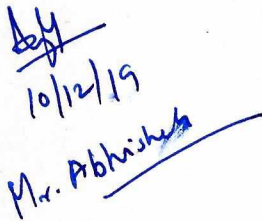 10/12/19
Mr. Abhishek